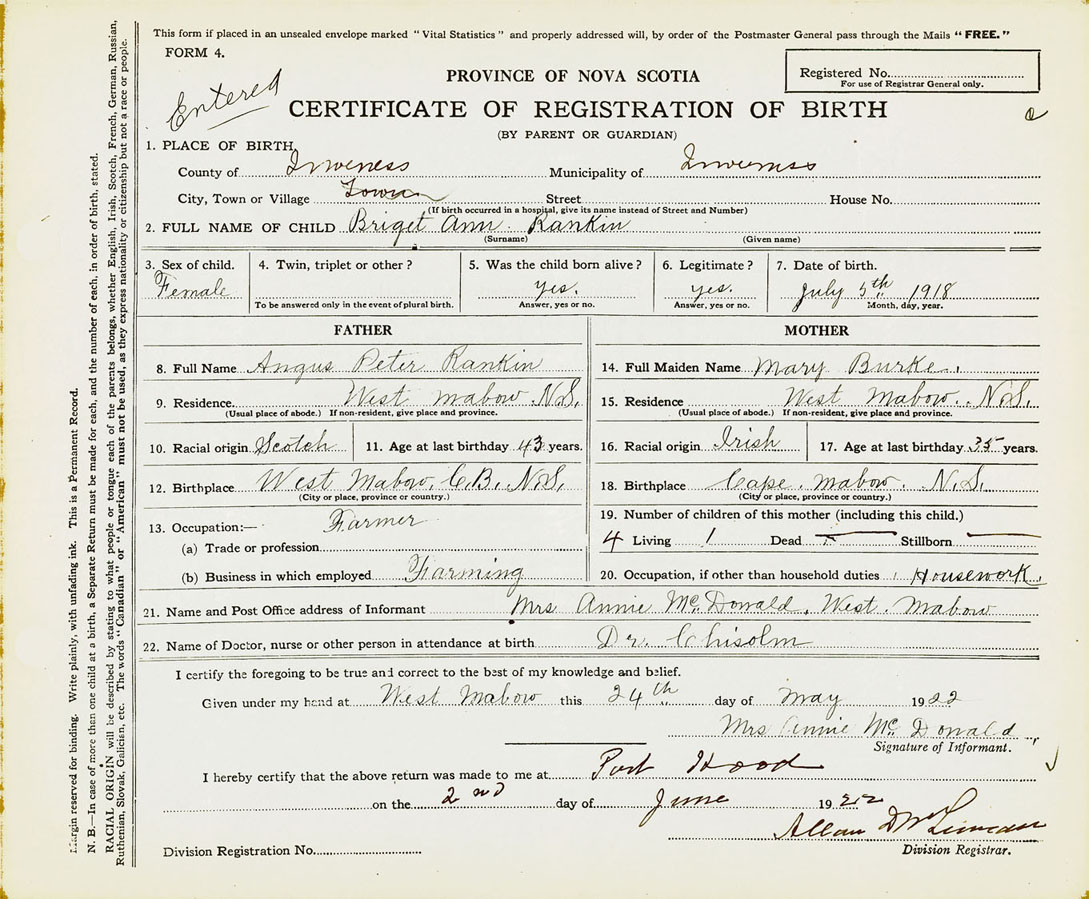 This form if placed in an unsealed envelope marked "Vital Statistics" and properly addressed will, by order of the Postmaster General pass through the Mails "FREE."
FORM 4.
Registered No.
For use of Registrar General only.
Entered
PROVINCE OF NOVA SCOTIA
CERTIFICATE OF REGISTRATION OF BIRTH
(BY PARENT OR GUARDIAN)
1. PLACE OF BIRTH,
County of Inverness Municipality of Inverness
City, Town or Village Town Street House No.
(If birth occurred in a hospital, give its name instead of Street and Number)
2. FULL NAME OF CHILD Briget Ann Rankin
(Surname) (Given name)
3. Sex of child. 4. Twin, triplet or other? 5. Was the child born alive? 6. Legitimate? 7. Date of birth.
Female yes. yes. July 5th 1918
To be answered only in the event of plural birth. Answer, yes or no. Answer, yes or no. Month, day, year.
FATHER
8. Full Name Angus Peter Rankin
9. Residence. West Mabow N.S.
(Usual place of abode.) If non-resident, give place and province.
10. Racial origin Scotch 11. Age at last birthday 43 years.
12. Birthplace West Mabow, C.B. N.S.
(City or place, province or country.)
13. Occupation:— Farmer
(a) Trade or profession
(b) Business in which employed Farming
MOTHER
14. Full Maiden Name Mary Burke
15. Residence West Mabow. N.S.
(Usual place of abode.) If non-resident, give place and province.
16. Racial origin Irish 17. Age at last birthday 35 years.
18. Birthplace Cape Mabow. N.S.
(City or place, province or country.)
19. Number of children of this mother (including this child.)
4 Living 1 Dead Stillborn
20. Occupation, if other than household duties Housework
21. Name and Post Office address of Informant Mrs Annie McDonald, West Mabow
22. Name of Doctor, nurse or other person in attendance at birth Dr. Chisolm
I certify the foregoing to be true and correct to the best of my knowledge and belief.
Given under my hand at West Mabow this 24th day of May 1922
Mrs Annie McDonald
Signature of Informant.
I hereby certify that the above return was made to me at Port Hood
on the 2nd day of June 1922
Allan
Division Registrar.
Division Registration No.
Margin reserved for binding. Write plainly, with unfading ink. This is a Permanent Record.
N. B.—In case of more than one child at a birth, a Separate Return must be made for each, and the number of each, in order of birth, stated.
RACIAL ORIGIN will be described by stating to what people or tongue each of the parents belongs, whether English, Irish, Scotch, French, German, Russian,
Ruthenian, Slovak, Galician, etc. The words "Canadian" or "American" must not be used, as they express nationality or citizenship but not a race or people.